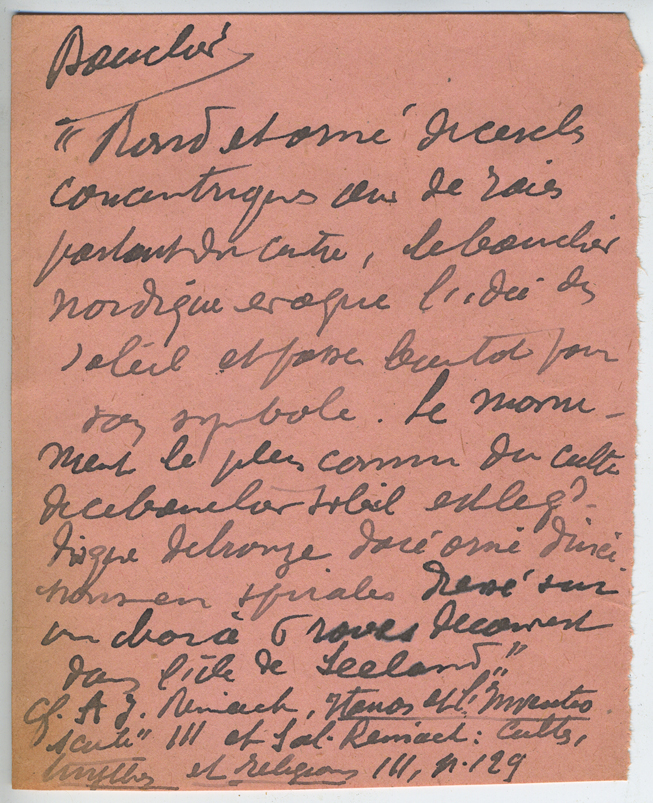 Bouclier
"Rond et orné de cercles
concentriques ou de raies
partant du centre, le bouclier
nordique evoque l'idée du
soleil et passe bientot pour
son symbole. Le monu-
ment le plus connu du culte
de ce bouclier soleil est le gd
disque de bronze doré orné d'inci-
sions en spirales dressé sur
un char à 6 roues decouvert
dans l'ile de Seeland"
cf. A J. Reinach, Itanos et l'"Inventio
scuti" III et Sal. Reinach: Cultes,
mythes et religions III, p. 129